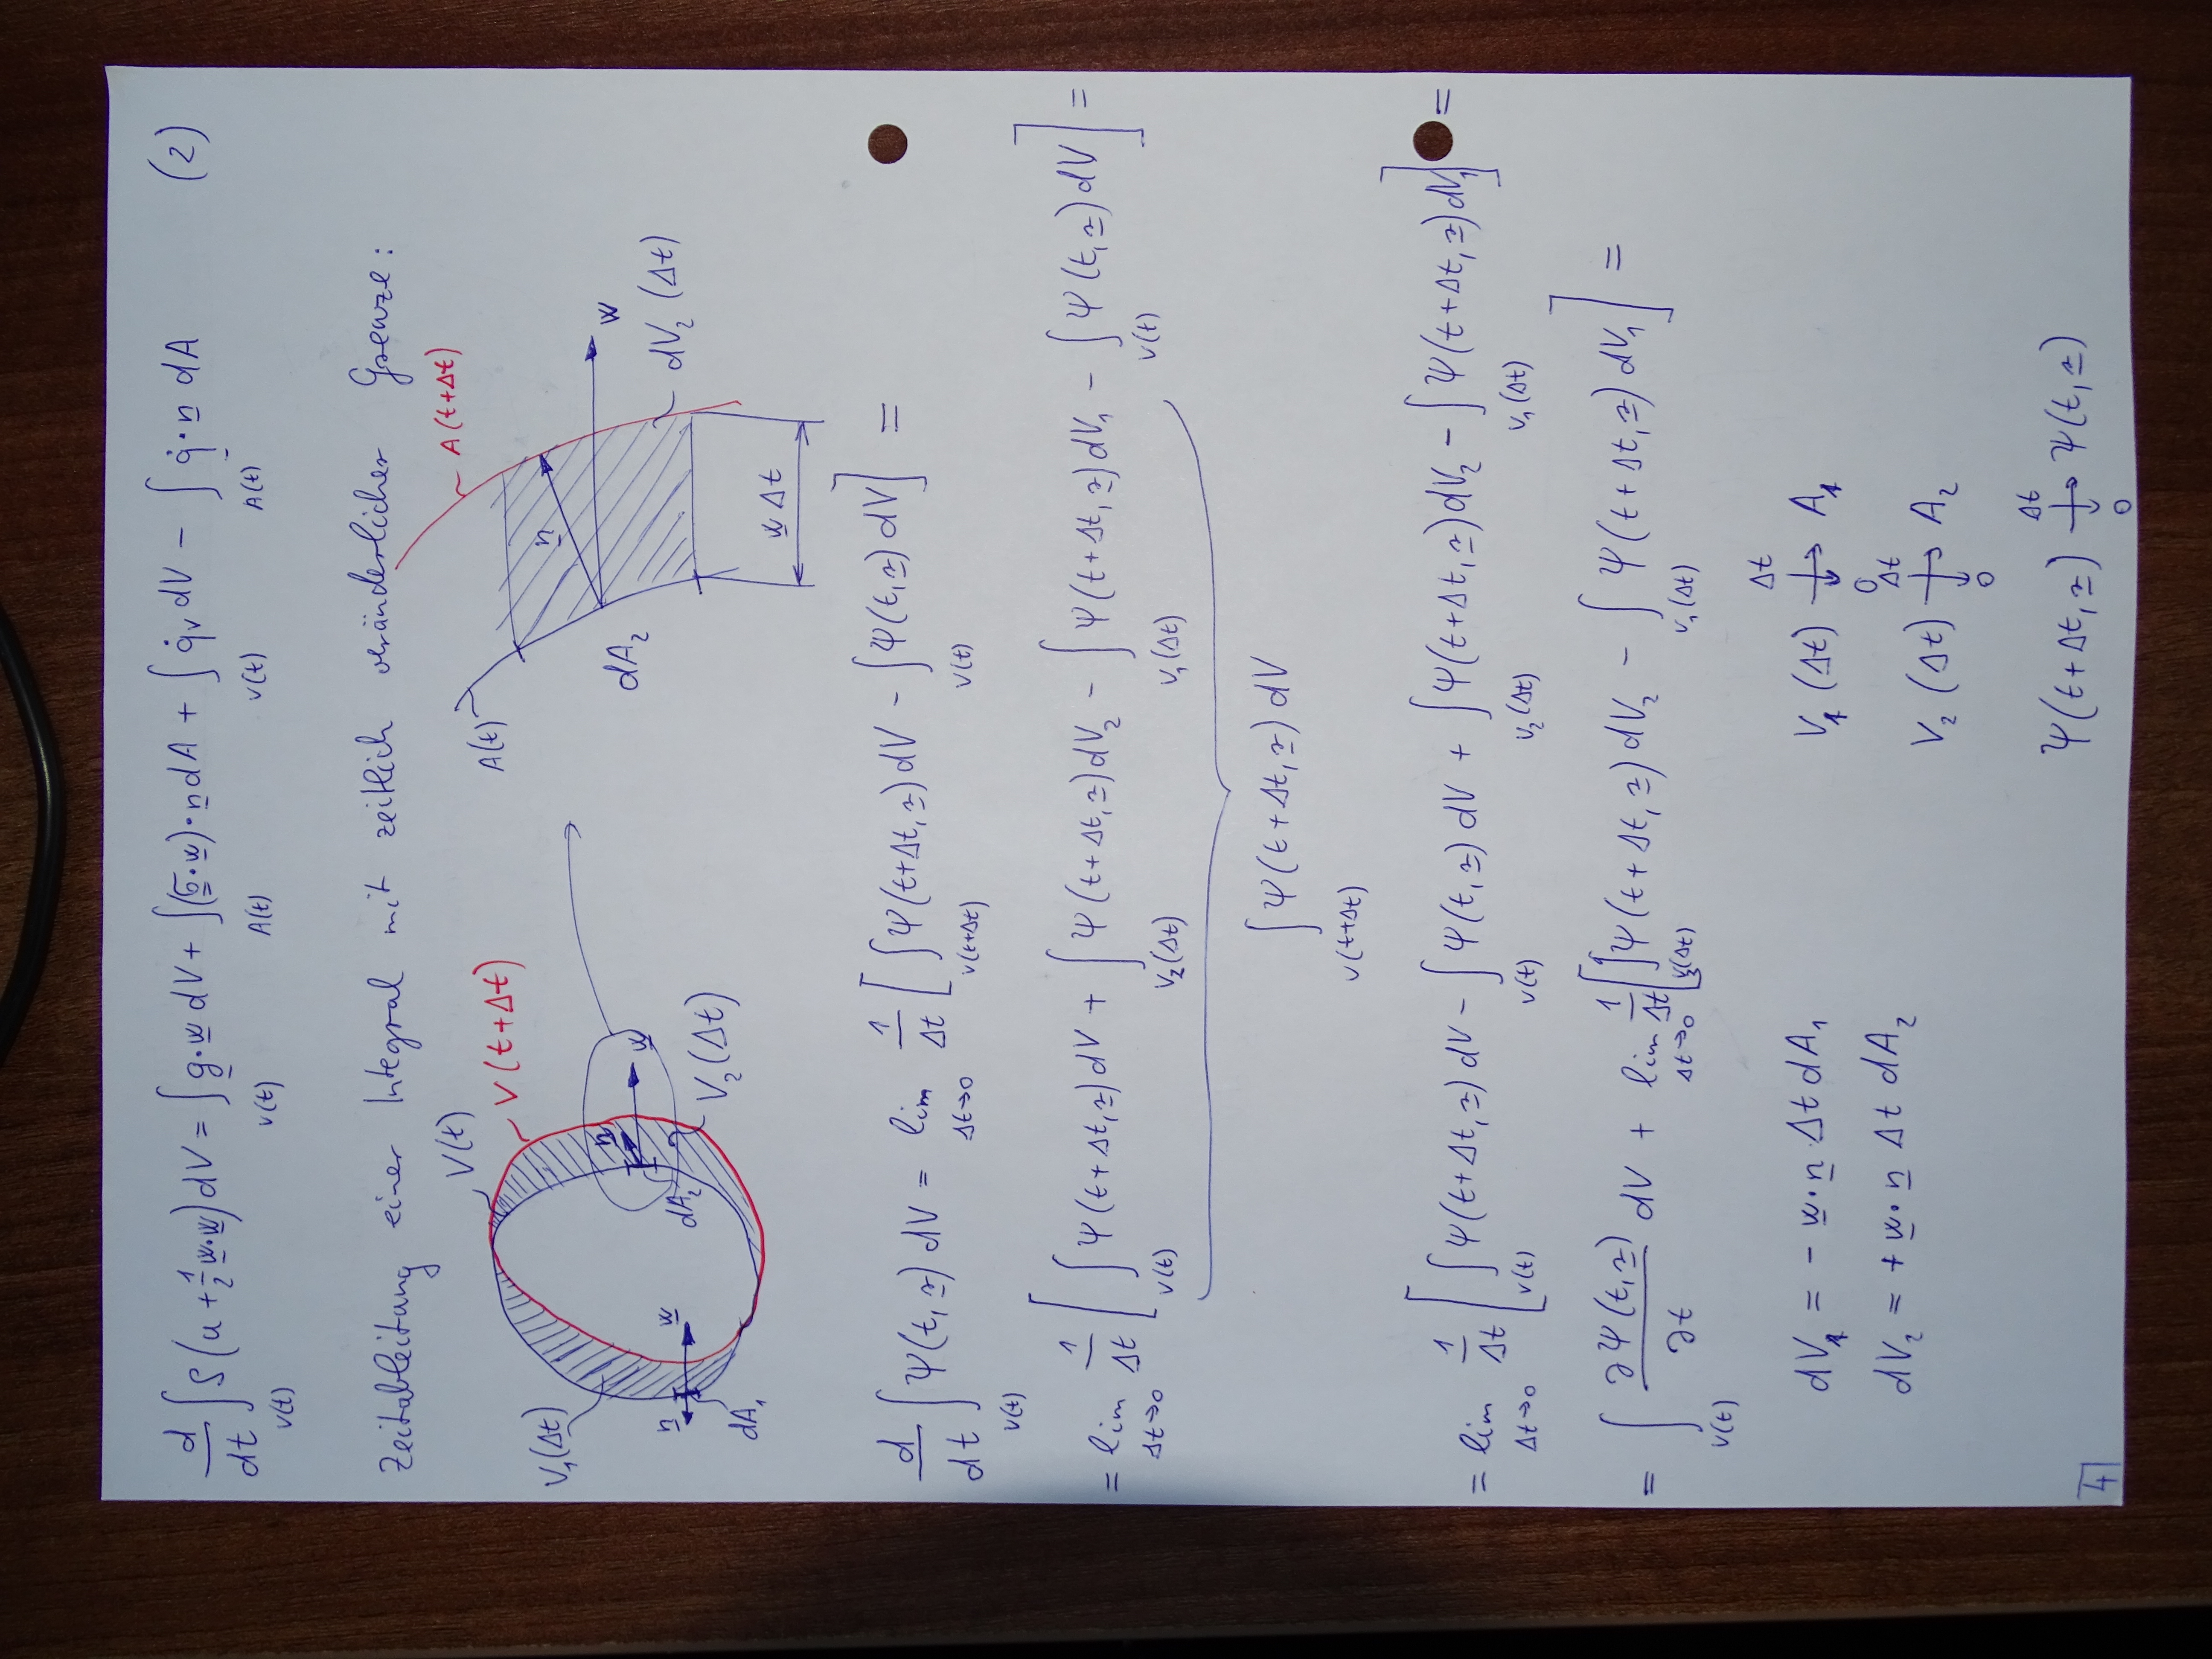 d/dt ∫_{V(t)} ρ(u + 1/2 w·w) dV = ∫_{V(t)} g·w dV + ∫_{A(t)} (σ·w)·n dA + ∫_{V(t)} q̇_V dV − ∫_{A(t)} q̇·n dA (2)
Zeitableitung einer Integral mit zeitlich veränderlicher Grenze:
V(t)
V(t+Δt)
V₁(Δt)
n
w
dA₁
n
w
dA₂
V₂(Δt)
A(t)
A(t+Δt)
n
w
dA₂
dV₂(Δt)
w Δt
d/dt ∫_{V(t)} Ψ(t,r) dV = lim_{Δt→0} 1/Δt [∫_{V(t+Δt)} Ψ(t+Δt,r) dV − ∫_{V(t)} Ψ(t,r) dV] =
= lim_{Δt→0} 1/Δt [∫_{V(t)} Ψ(t+Δt,r) dV + ∫_{V₂(Δt)} Ψ(t+Δt,r) dV₂ − ∫_{V₁(Δt)} Ψ(t+Δt,r) dV₁ − ∫_{V(t)} Ψ(t,r) dV] =
∫_{V(t+Δt)} Ψ(t+Δt,r) dV
= lim_{Δt→0} 1/Δt [∫_{V(t)} Ψ(t+Δt,r) dV − ∫_{V(t)} Ψ(t,r) dV + ∫_{V₂(Δt)} Ψ(t+Δt,r) dV₂ − ∫_{V₁(Δt)} Ψ(t+Δt,r) dV₁] =
= ∫_{V(t)} ∂Ψ(t,r)/∂t dV + lim_{Δt→0} 1/Δt [∫_{V₂(Δt)} Ψ(t+Δt,r) dV₂ − ∫_{V₁(Δt)} Ψ(t+Δt,r) dV₁] =
dV₁ = − w·n·Δt dA₁ V₁(Δt) → A₁ Δt ↓ 0
dV₂ = + w·n Δt dA₂ V₂(Δt) → A₂ Δt ↓ 0
Ψ(t+Δt,r) → Ψ(t,r) Δt ↓ 0
4